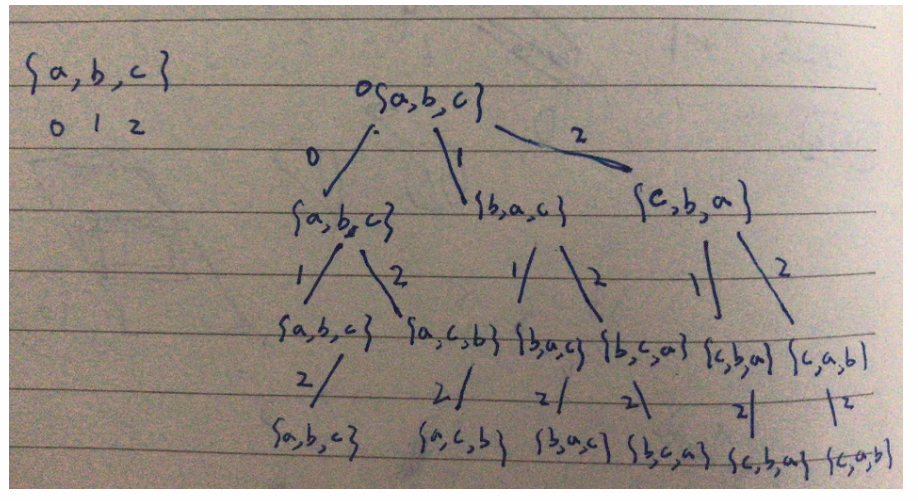 {a, b, c}
0 1 2
0{a, b, c}
0 1 2
{a, b, c} {b, a, c} {c, b, a}
1 2 1 2 1 2
{a, b, c} {a, c, b} {b, a, c} {b, c, a} {c, b, a} {c, a, b}
2 2 2 2 2 2
{a, b, c} {a, c, b} {b, a, c} {b, c, a} {c, b, a} {c, a, b}